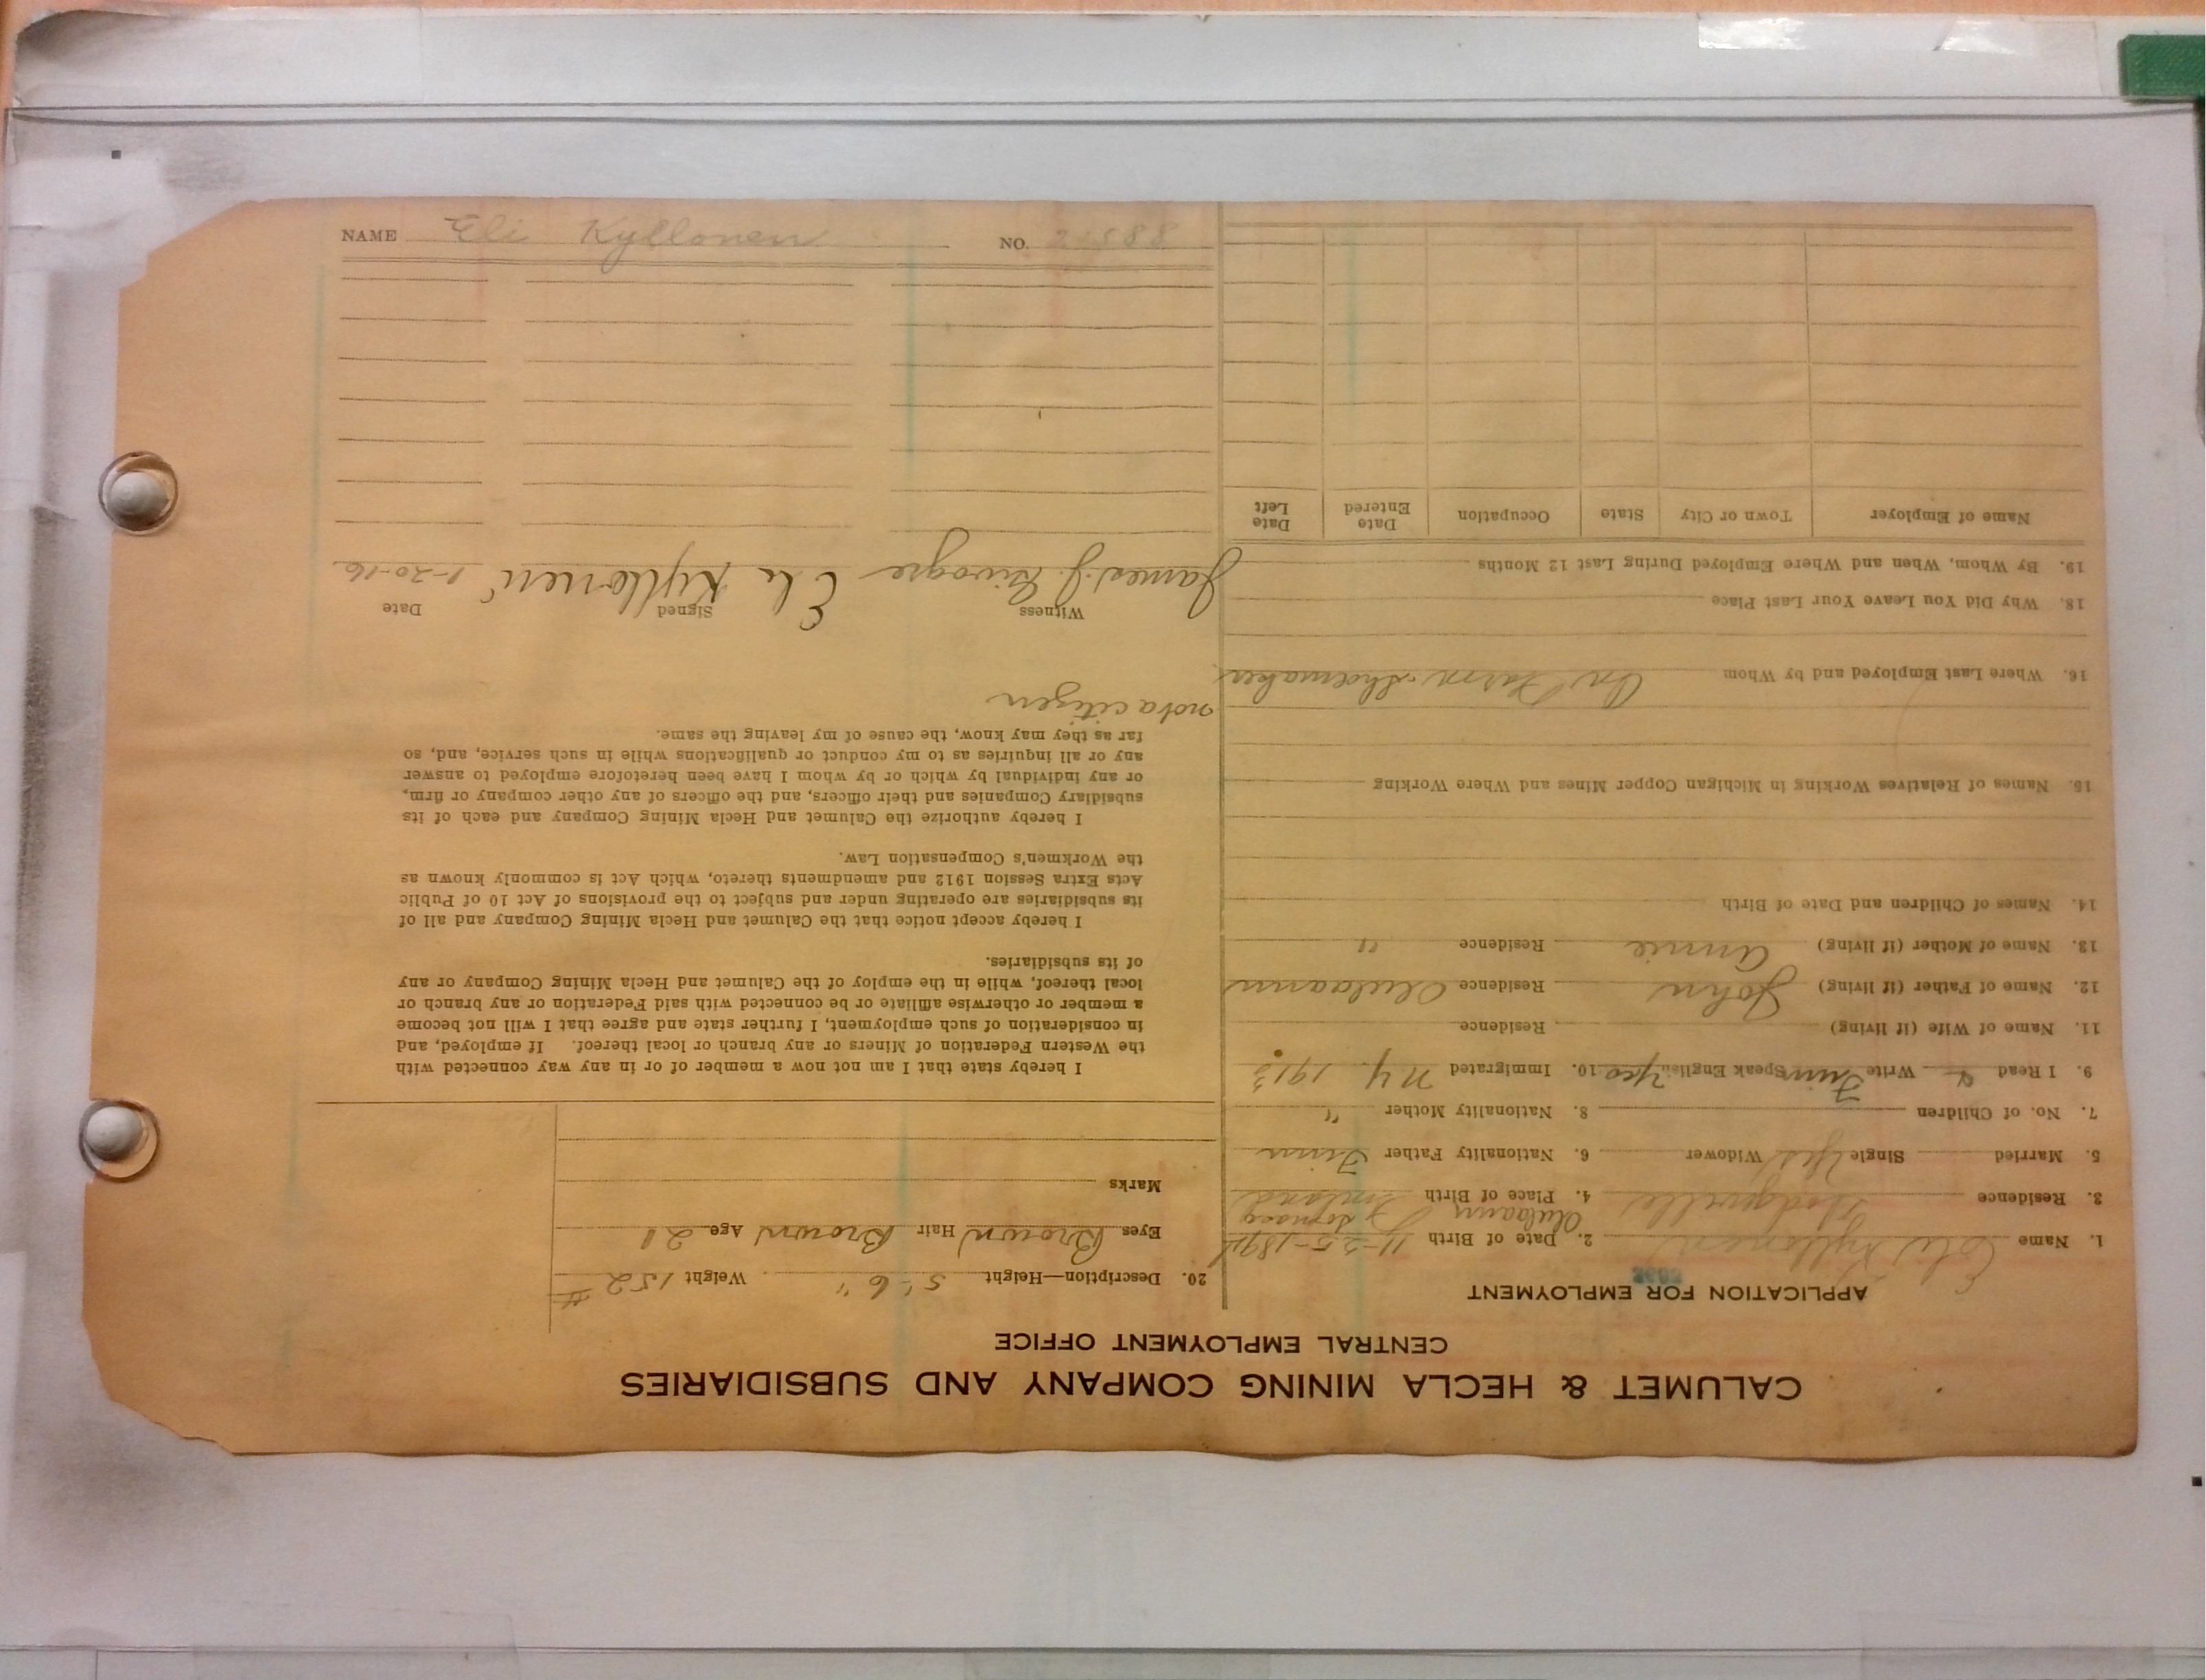 CALUMET & HECLA MINING COMPANY AND SUBSIDIARIES
CENTRAL EMPLOYMENT OFFICE
APPLICATION FOR EMPLOYMENT
1. Name Eli Kyllonen 2. Date of Birth 11-25-1894
3. Residence 4. Place of Birth Finland
5. Married Single Yes Widower 6. Nationality Father Finn
7. No. of Children 8. Nationality Mother "
9. I Read & Write Finn Speak English Yes 10. Immigrated N.Y. 1913
11. Name of Wife (if living) Residence
12. Name of Father (if living) John Residence
13. Name of Mother (if living) Annie Residence "
14. Names of Children and Date of Birth
15. Names of Relatives Working in Michigan Copper Mines and Where Working
16. Where Last Employed and by Whom On Farm. Shoemaker
18. Why Did You Leave Your Last Place
19. By Whom, When and Where Employed During Last 12 Months
Name of Employer Town or City State Occupation Date Entered Date Left
20. Description—Height 5'-6" Weight 152#
Eyes Brown Hair Brown Age 21
Marks
I hereby state that I am not now a member of or in any way connected with
the Western Federation of Miners or any branch or local thereof. If employed, and
in consideration of such employment, I further state and agree that I will not become
a member or otherwise affiliate or be connected with said Federation or any branch or
local thereof, while in the employ of the Calumet and Hecla Mining Company or any
of its subsidiaries.
I hereby accept notice that the Calumet and Hecla Mining Company and all of
its subsidiaries are operating under and subject to the provisions of Act 10 of Public
Acts Extra Session 1912 and amendments thereto, which Act is commonly known as
the Workmen's Compensation Law.
I hereby authorize the Calumet and Hecla Mining Company and each of its
subsidiary Companies and their officers, and the officers of any other company or firm,
or any individual by which or by whom I have been heretofore employed to answer
any or all inquiries as to my conduct or qualifications while in such service, and, so
far as they may know, the cause of my leaving the same.
not a citizen
Witness Signed Date
James J. Eli Kyllonen 1-20-16
NAME Eli Kyllonen NO. 21588